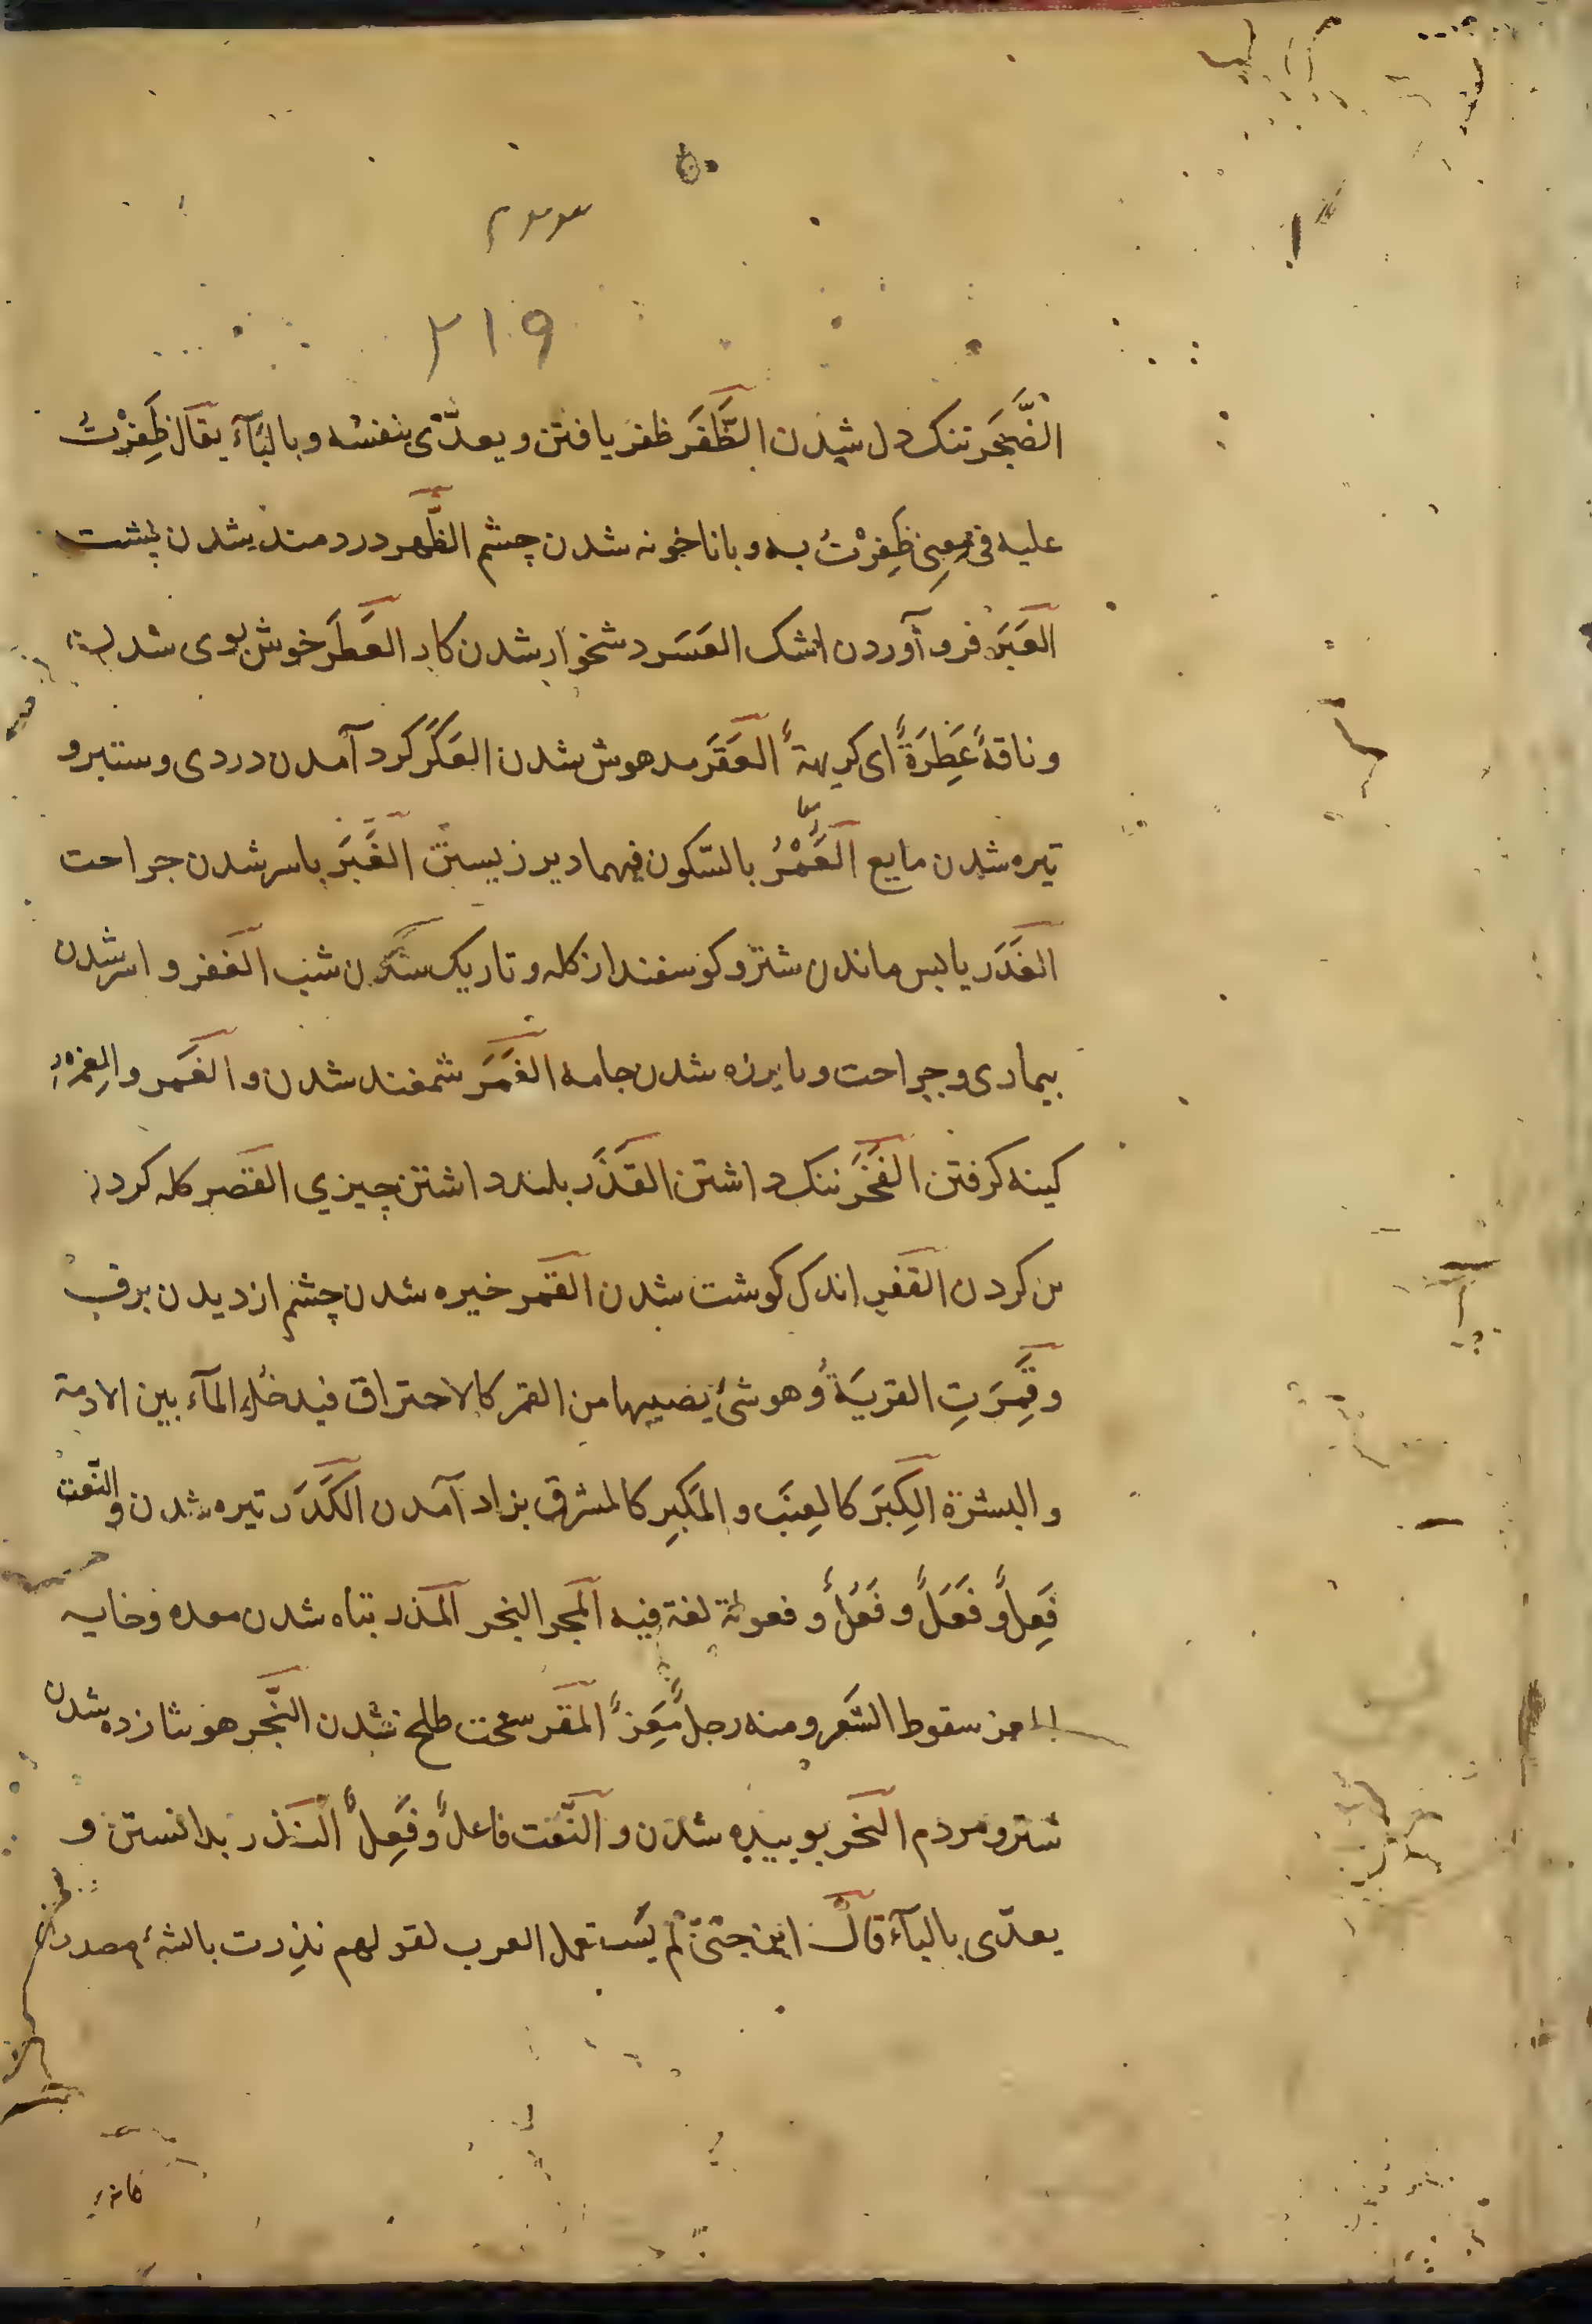 ۲۱۹
الضَّجَر تنک دل شدن الظَّفَر ظفر یافتن و یعدّی بنفسه و بالبَآء یقال ظَفِرْتُ
علیه فی معنی ظَفِرْتُ به و با ناخونه شدن چشم الظَّهر دردمند شدن پشت
العَبَر فرو آوردن اشک العَسَر دشخوار شدن کار العَطَر خوش بوی شدن
و ناقةٌ عَطِرَةٌ ای کریمةٌ العَقَر مدهوش شدن العَکَر کرد آمدن دردی و ستبر و
تیره شدن مایع العَُمْرُ بالسّکون فیهما دیر زیستن الغَبَر باسر شدن جراحت
الغَدَر باپس ماندن شتر و کوسفند از کله و تاریک شدن شب الغفر و اسر شدن
بیماری و جراحت و با پرزه شدن جامه الغَمَر شمغند شدن و الغَمر و الغِمر
کینه کرفتن الفَخَر ننک داشتن القَذَر پلید داشتن چیزی القصر کله کردن
بن کردن القفر اندک کوشت شدن القمر خیره شدن چشم از دیدن برف
و قَمِرَتِ القربَةُ و هو شئٌ یصیبها من القمر کالاحتراق فیدخل المآء بین الادمة
و البشرة الکِبَر کالعِنَب و المَکبِر کالمشرق بزاد آمدن الکَدَر تیره شدن و النّعت
فَعِلٌ و فَعَلٌ و فَعْلٌ و فعولة لغة فیه المجر البخر المذر تباه شدن معده و خایه
المعر سقوط الشَعر و منه رجل مَعِرٌ المقر سخت طلح شدن النَّجر هوشا زده شدن
شتر و مردم النَخر پوسیده شدن و النَّعت فاعلٌ و فَعِلٌ النذر بدانستن و
یعدّی بالبآء قال ابن جنّی لم یستعمل العرب لقولهم نذِرت بالشئ مصدرا